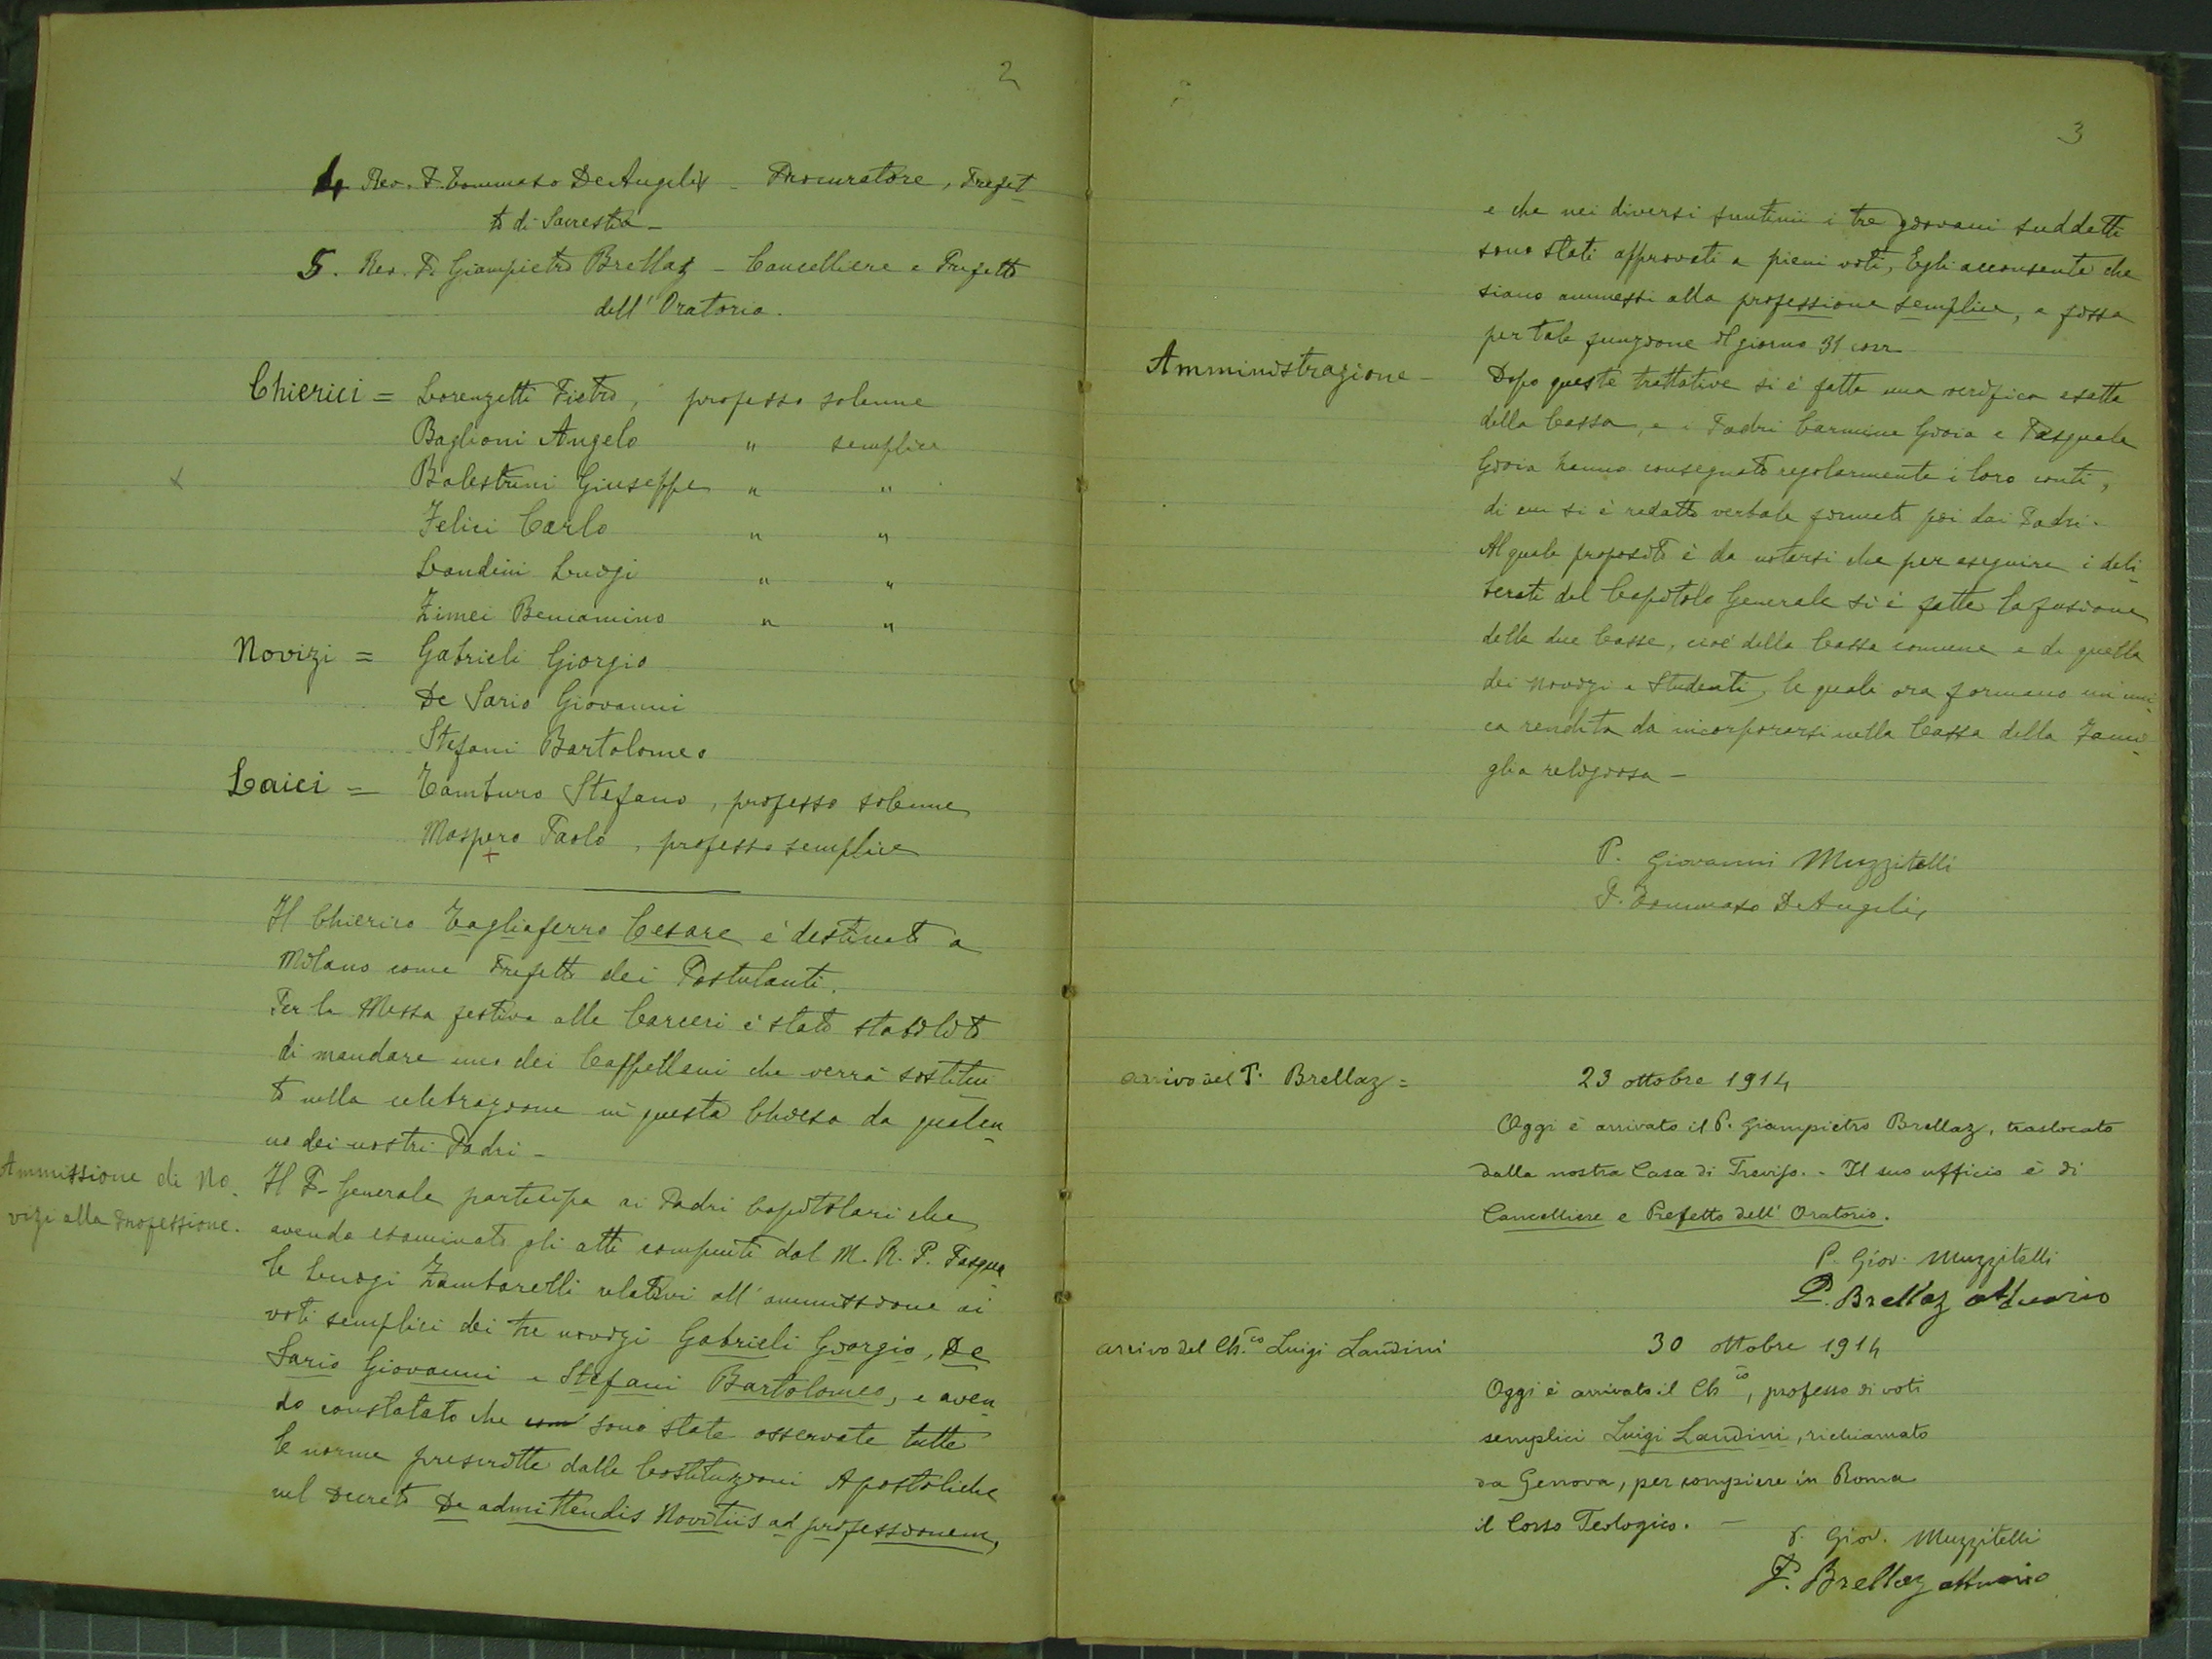 2
4. Rev. P. Tommaso De Angelis – Procuratore, Prefet-
to di Sacrestia –
5. Rev. P. Giampietro Brellaz – Cancelliere e Prefetto
dell'Oratorio.
Chierici = Lorenzetti Pietro, professo solenne
Baglioni Angelo " semplice
x Balestrini Giuseppe " "
Felici Carlo " "
Landini Luigi " "
Zimei Beniamino " "
Novizi = Gabrieli Giorgio
De Sario Giovanni
Stefani Bartolomeo
Laici = Tamburo Stefano, professo solenne
Maspero Paolo, professo semplice
+
Il Chierico Tagliaferro Cesare è destinato a
Milano come Prefetto dei Postulanti.
Per la Messa festiva alle Carceri è stato stabilito
di mandare uno dei Cappellani che verrà sostitui-
to nella celebrazione in questa Chiesa da qualcu-
no dei nostri Padri –
Ammissione di No-
vizi alla Professione.
Il P. Generale partecipa ai Padri Capitolari che
avendo esaminato gli atti compiuti dal M. R. P. Pasqua-
le Luigi Zambarelli relativi all'ammissione ai
voti semplici dei tre novizi Gabrieli Giorgio, De
Sario Giovanni e Stefani Bartolomeo, e aven-
do constatato che sono state osservate tutte
le norme prescritte dalle Costituzioni Apostoliche
nel Decreto De admittendis Novitiis ad professionem,
3
e che nei diversi scrutinii i tre giovani suddetti
sono stati approvati a pieni voti, Egli acconsente che
siano ammessi alla professione semplice, e fissa
per tale funzione il giorno 31 corr.
Amministrazione –
Dopo queste trattative si è fatta una verifica esatta
della Cassa, e i Padri Carmine Gioia e Pasquale
Gioia hanno consegnato regolarmente i loro conti,
di cui si è redatto verbale firmato poi dai Padri.
Al quale proposito è da notarsi che per eseguire i deli-
berati del Capitolo Generale si è fatta la fusione
delle due Casse, cioè della Cassa comune e di quella
dei Novizi e Studenti, le quali ora formano un'uni-
ca rendita da incorporarsi nella Cassa della Fami-
glia religiosa –
P. Giovanni Muzzitelli
P. Tommaso De Angelis
arrivo del P. Brellaz =
23 ottobre 1914
Oggi è arrivato il P. Giampietro Brellaz, traslocato
dalla nostra Casa di Treviso. - Il suo ufficio è di
Cancelliere e Prefetto dell' Oratorio.
P. Giov. Muzzitelli
P. Brellaz attuario
arrivo del Ch.co Luigi Landini
30 ottobre 1914
Oggi è arrivato il Ch.co, professo di voti
semplici Luigi Landini, richiamato
da Genova, per compiere in Roma
il Corso Teologico. –
P. Giov. Muzzitelli
P. Brellaz attuario